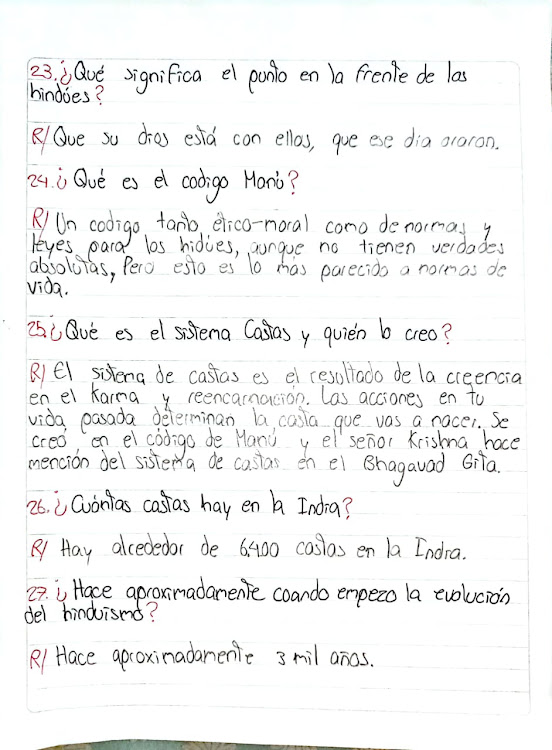 23.¿Qué significa el punto en la frente de los
hindúes?
R/Que su dios está con ellos, que ese día oraron.
24.¿Qué es el codigo Manú?
R/Un codigo tanto ético-moral como de normas y
leyes para los hidúes, aunque no tienen verdades
absolutas, Pero esto es lo más parecido a normas de
vida.
25.¿Qué es el sistema Castas y quién lo creo?
R/El sistema de castas es el resultado de la creencia
en el Karma y reencarnación. Las acciones en tu
vida pasada determinan la casta que vas a nacer. Se
creó en el código de Manú y el señor Krishna hace
mención del sistema de castas en el Bhagavad Gita.
26.¿Cuántas castas hay en la India?
R/Hay alcededor de 6,400 castas en la India.
27.¿Hace aproximadamente coando empezo la evolución
del hinduismo?
R/Hace aproximadamente 3 mil años.